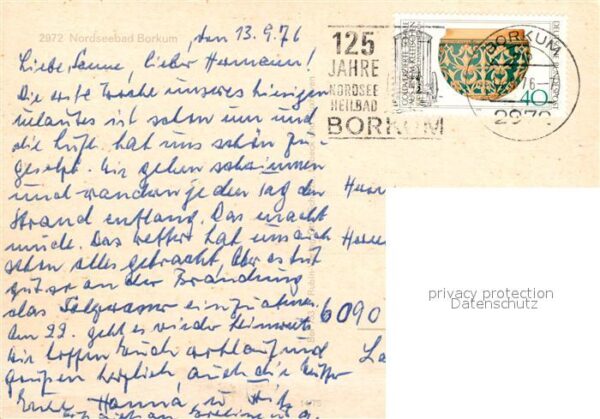 2972 Nordseebad Borkum
den 13.9.76
Liebe Senne, lieber Hermann!
Die erste Woche unseres hiesigen
urlaubes ist schon um und
die Luft hat uns schön zu-
gesetzt. Wir gehen schwimmen
und wandern jeden Tag den
Strand entlang. Das macht
müde. Das Wetter hat uns auch
schon alles gebracht. Aber es tut
gut so an der Brandung
das Salzwasser einzuatmen.
Am 22. geht es wieder heimwärts
Wir hoffen Euch wohlauf und
grüßen herzlich auch die Mutter
Eure Hanna u
125
JAHRE
NORDSEE
HEILBAD
BORKUM
BORKUM
76-
2972
40
6090
privacy protection
Datenschutz